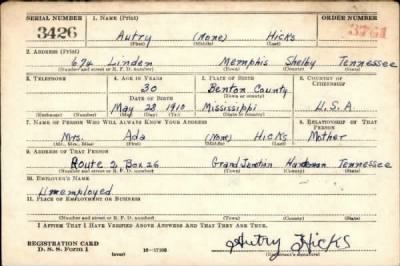 SERIAL NUMBER 1. NAME (Print) ORDER NUMBER
3426 Autry (None) Hicks 3761
(First) (Middle) (Last)
2. ADDRESS (Print)
674 Linden Memphis Shelby Tennessee
(Number and street or R. F. D. number) (Town) (County) (State)
3. TELEPHONE 4. AGE IN YEARS 5. PLACE OF BIRTH 6. COUNTRY OF CITIZENSHIP
30 Benton County
DATE OF BIRTH (Town or county)
May 28 1910 Mississippi U.S.A
(Exchange) (Number) (Mo.) (Day) (Yr.) (State or country)
7. NAME OF PERSON WHO WILL ALWAYS KNOW YOUR ADDRESS 8. RELATIONSHIP OF THAT PERSON
Mrs. Ada (None) Hicks Mother
(Mr., Mrs., Miss) (First) (Middle) (Last)
9. ADDRESS OF THAT PERSON
Route 2 Box 26 Grand Junction Hardeman Tennessee
(Number and street or R. F. D. number) (Town) (County) (State)
10. EMPLOYER'S NAME
Unemployed
11. PLACE OF EMPLOYMENT OR BUSINESS
(Number and street or R. F. D. number) (Town) (County) (State)
I AFFIRM THAT I HAVE VERIFIED ABOVE ANSWERS AND THAT THEY ARE TRUE.
REGISTRATION CARD
D. S. S. Form 1 (over) Autry Hicks
(Registrant's signature)